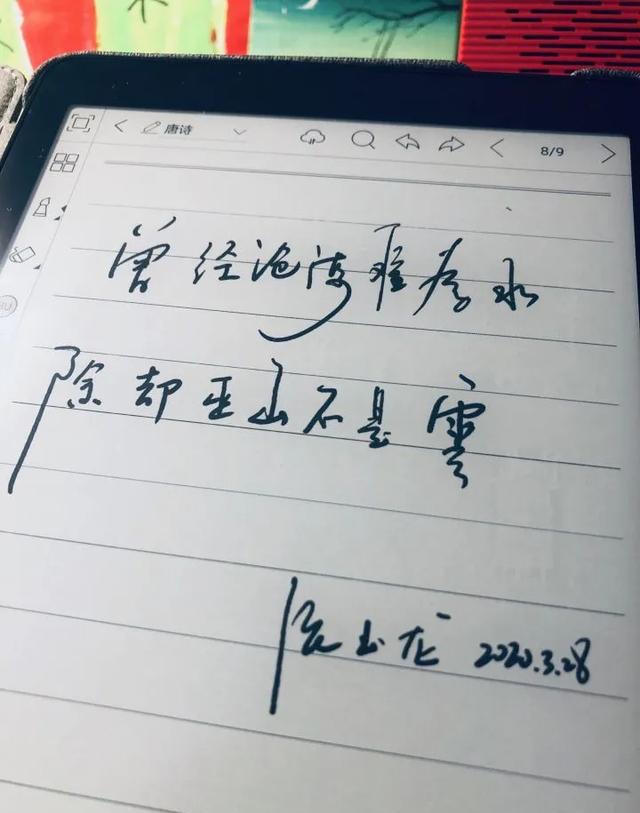 唐诗
8/9
曾经沧海难为水
除却巫山不是雲
玉龙 2020.3.28